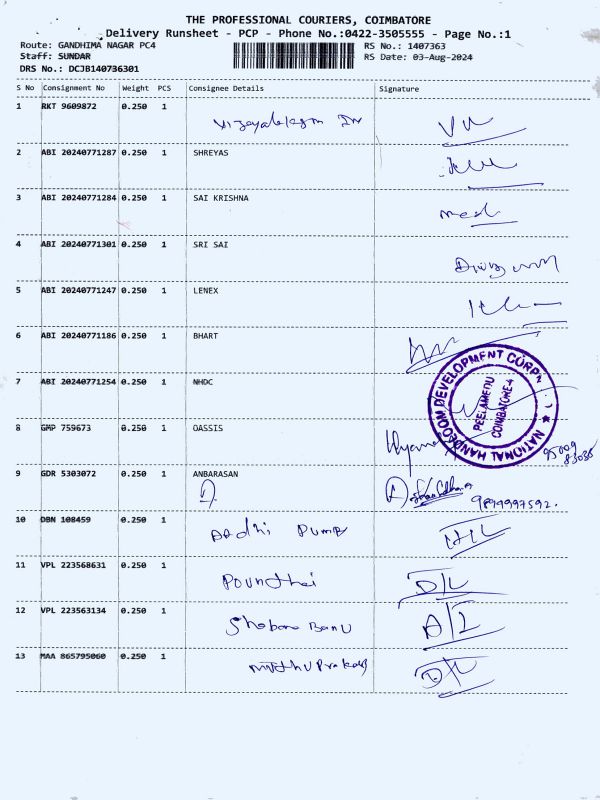 THE PROFESSIONAL COURIERS, COIMBATORE
Delivery Runsheet - PCP - Phone No.:0422-3505555 - Page No.:1
Route: GANDHIMA NAGAR PC4 RS No.: 1407363
Staff: SUNDAR RS Date: 03-Aug-2024
DRS No.: DCJB140736301
S No Consignment No Weight PCS Consignee Details Signature
1 RKT 9609872 0.250 1
2 ABI 20240771287 0.250 1 SHREYAS
3 ABI 20240771284 0.250 1 SAI KRISHNA
4 ABI 20240771301 0.250 1 SRI SAI
5 ABI 20240771247 0.250 1 LENEX
6 ABI 20240771186 0.250 1 BHART
7 ABI 20240771254 0.250 1 NHDC
NATIONAL HANDLOOM DEVELOPMENT CORPN.
PEELAMEDU
COIMBATORE-4
8 GMP 759673 0.250 1 OASSIS
9 GDR 5303072 0.250 1 ANBARASAN
9894997592.
10 DBN 108459 0.250 1 Aadhi Pump
11 VPL 223568631 0.250 1 Pounthai D/L
12 VPL 223563134 0.250 1 Shobana Banu
13 MAA 865795060 0.250 1 Muthu Prakash D/L